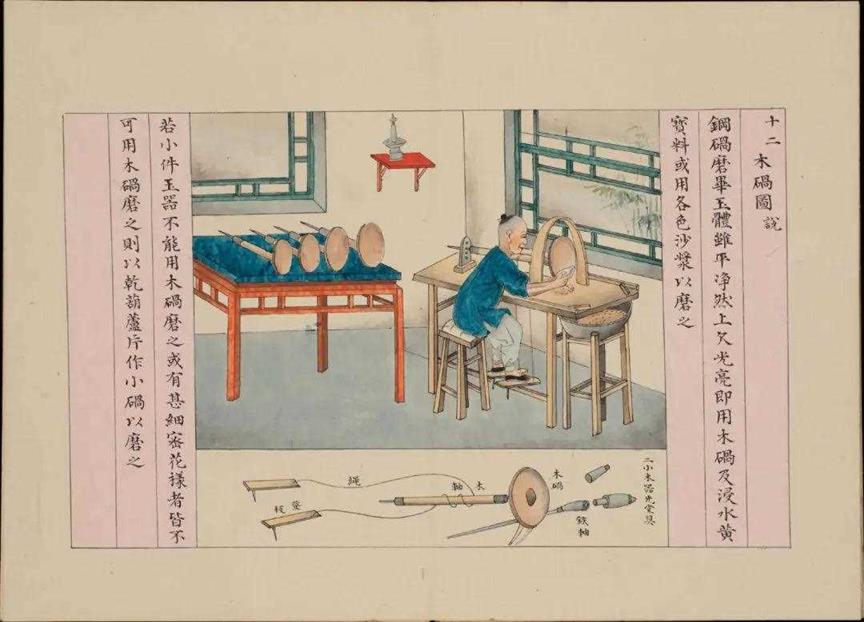 十二
木碢圖說
鋼碢磨畢玉體雖平净然上欠光亮即用木碢及浸水黄
寳料或用各色沙漿以磨之
若小件玉器不能用木碢磨之或有甚細密花樣者皆不
可用木碢磨之則以乾葫蘆片作小碢以磨之
二小木器光堂具
木碢
鉄軸
木軸
繩
登板